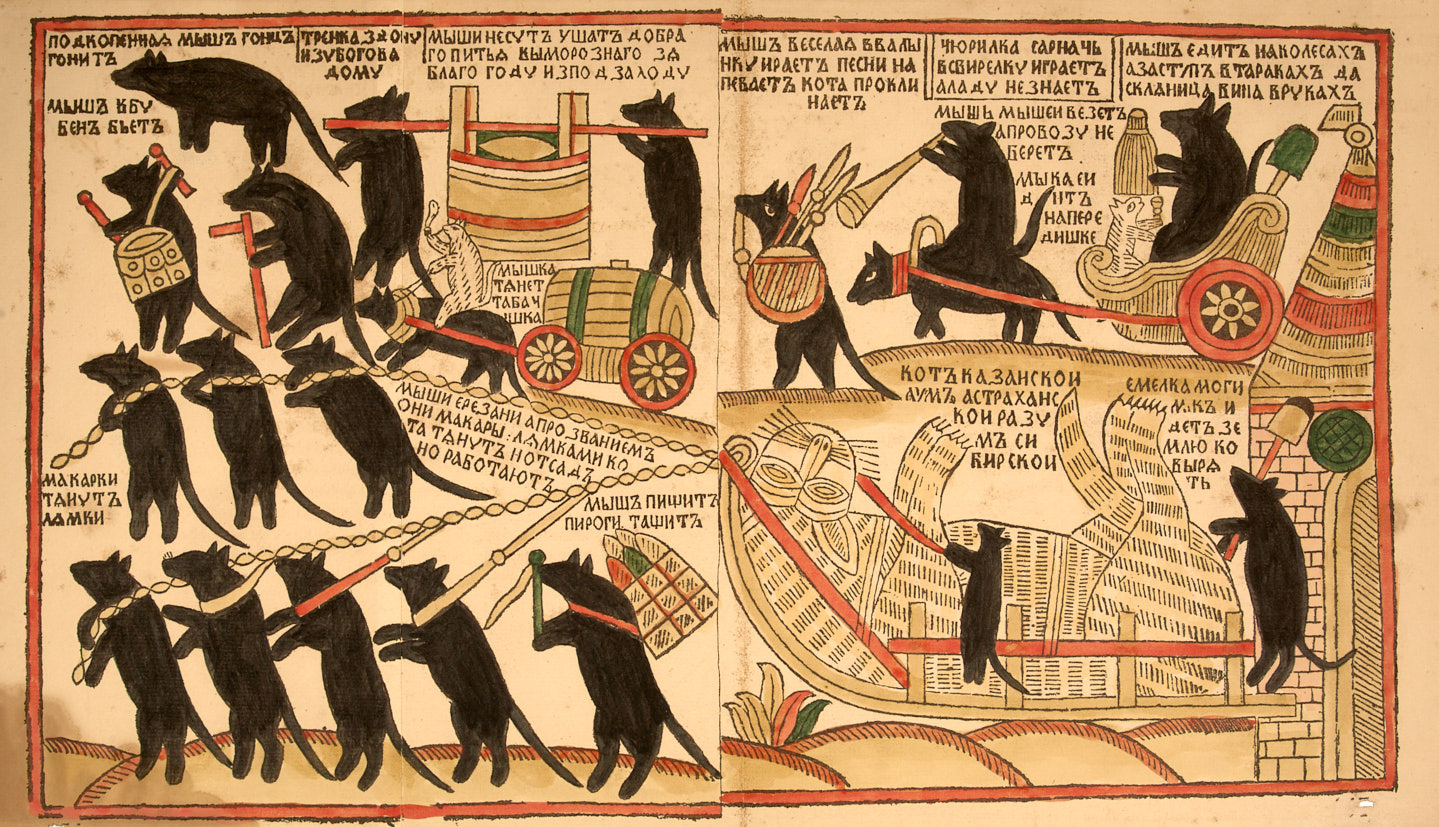 ПОДКОПЕННАЯ МЫШЪ ГОНЦЪ
ГОНИТЪ
ТРЕНКА З ДОНУ
ИЗУБОГОВА
ДОМУ
МЫШИ НЕСУТЪ УШАТЪ ДОБРА
ГО ПИТЬЯ ВЫМОРОЗНАГО ЗА
БЛАГО ГОДУ ИЗПОД ЗАХОДУ
МЫШЪ ВЪ БУ
БЕНЪ БЬЕТЪ
МЫШКА
ТЯНЕТ
ТАБАЧ
ИШКА
МЫШИ ЕРЕЗАНИ А ПРОЗВАНИЕМЪ
ОНИ МАКАРЫ: ЛЯМКАМИ КО
ТА ТЯНУТЪ НОТСАДЪ
НО РАБОТАЮТЪ
МАКАРКИ
ТЯНУТЪ
ЛЯМКИ
МЫШЪ ПИЩИТЪ
ПИРОГИ ТАЩИТЪ
МЫШЪ ВЕСЕЛАЯ ВВАЛЫ
НКУ ИРАЕТЪ ПЕСНИ НА
ПЕВАЕТЪ КОТА ПРОКЛИ
НАЕТЪ
ЧЮРИЛКА САРНАЧЬ
ВСВИРЕЛКУ ИГРАЕТЪ
АЛАДУ НЕЗНАЕТЪ
МЫШЪ ЕДИТЪ НАКОЛЕСАХЪ
АЗАСТУПЪ ВТАРАКАХЪ ДА
СКЛАНИЦА ВИНА ВРУКАХЪ
МЫШЬ МЫШЕИ ВЕЗЕТЪ
АПРОВОЗУ НЕ
БЕРЕТЪ
МЫКА СИ
ДИТЪ
НАПЕРЕ
ДИШКЕ
КОТЪ КАЗАНСКОИ
АУМЪ АСТРАХАНС
КОИ РАЗУ
МЪ СИ
БИРСКОИ
ЕМЕЛКА МОГИ
ЛЯКЪ И
ДЕТЪ ЗЕ
МЛЮ КО
ВЫРЯ
ТЬ